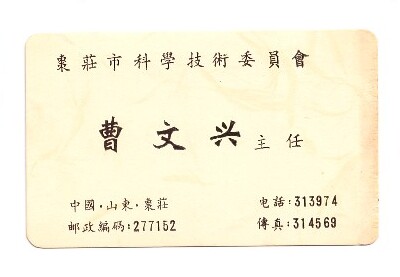 棗莊市科學技術委員會
曹文兴 主任
中國·山東·棗莊 电話:313974
邮政编码:277152 傳真:314569